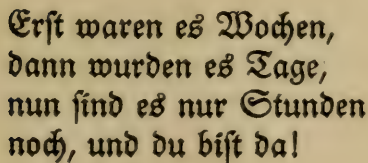 Erſt waren es Wochen,
dann wurden es Tage,
nun ſind es nur Stunden
noch, und du biſt da!